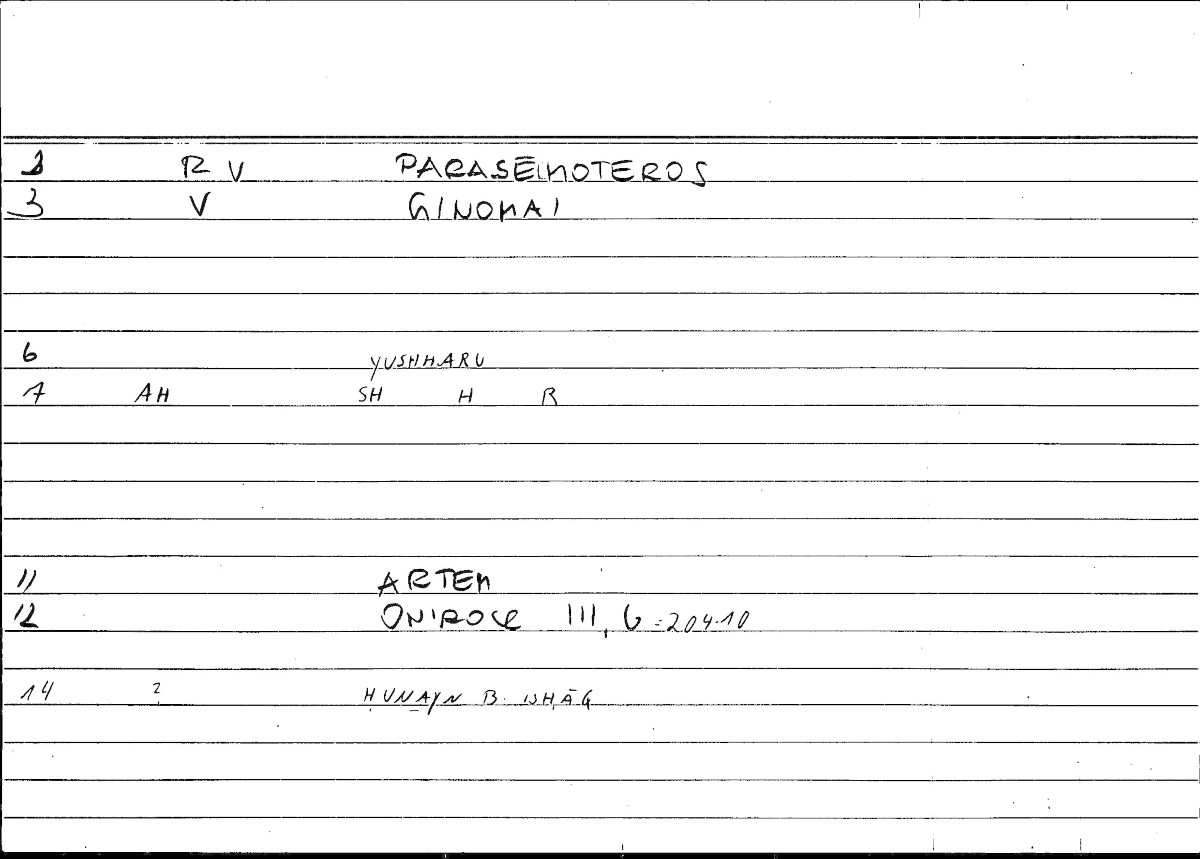 2 R V PARASĒMOTEROS
3 V GINOMAI
6 YUSHHARU
7 AH SH H R
11 ARTEM
12 ONIROCR III, 6 = 204.10
14 ? ḤUNAYN B. ISḤĀQ